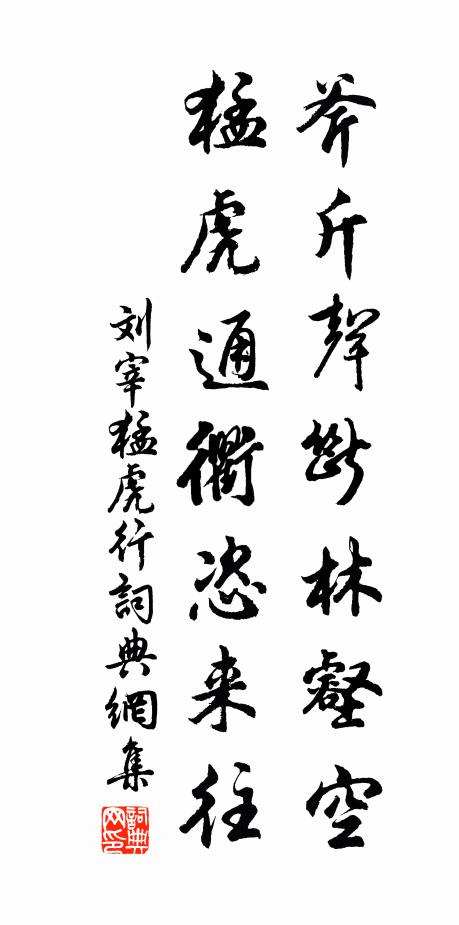 斧斤聲斷林壑空
猛虎通衢恣来往
刘宰猛虎行詞典網集
詞典网印